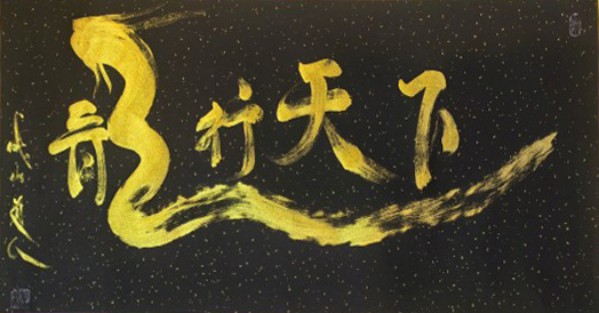 龍行天下